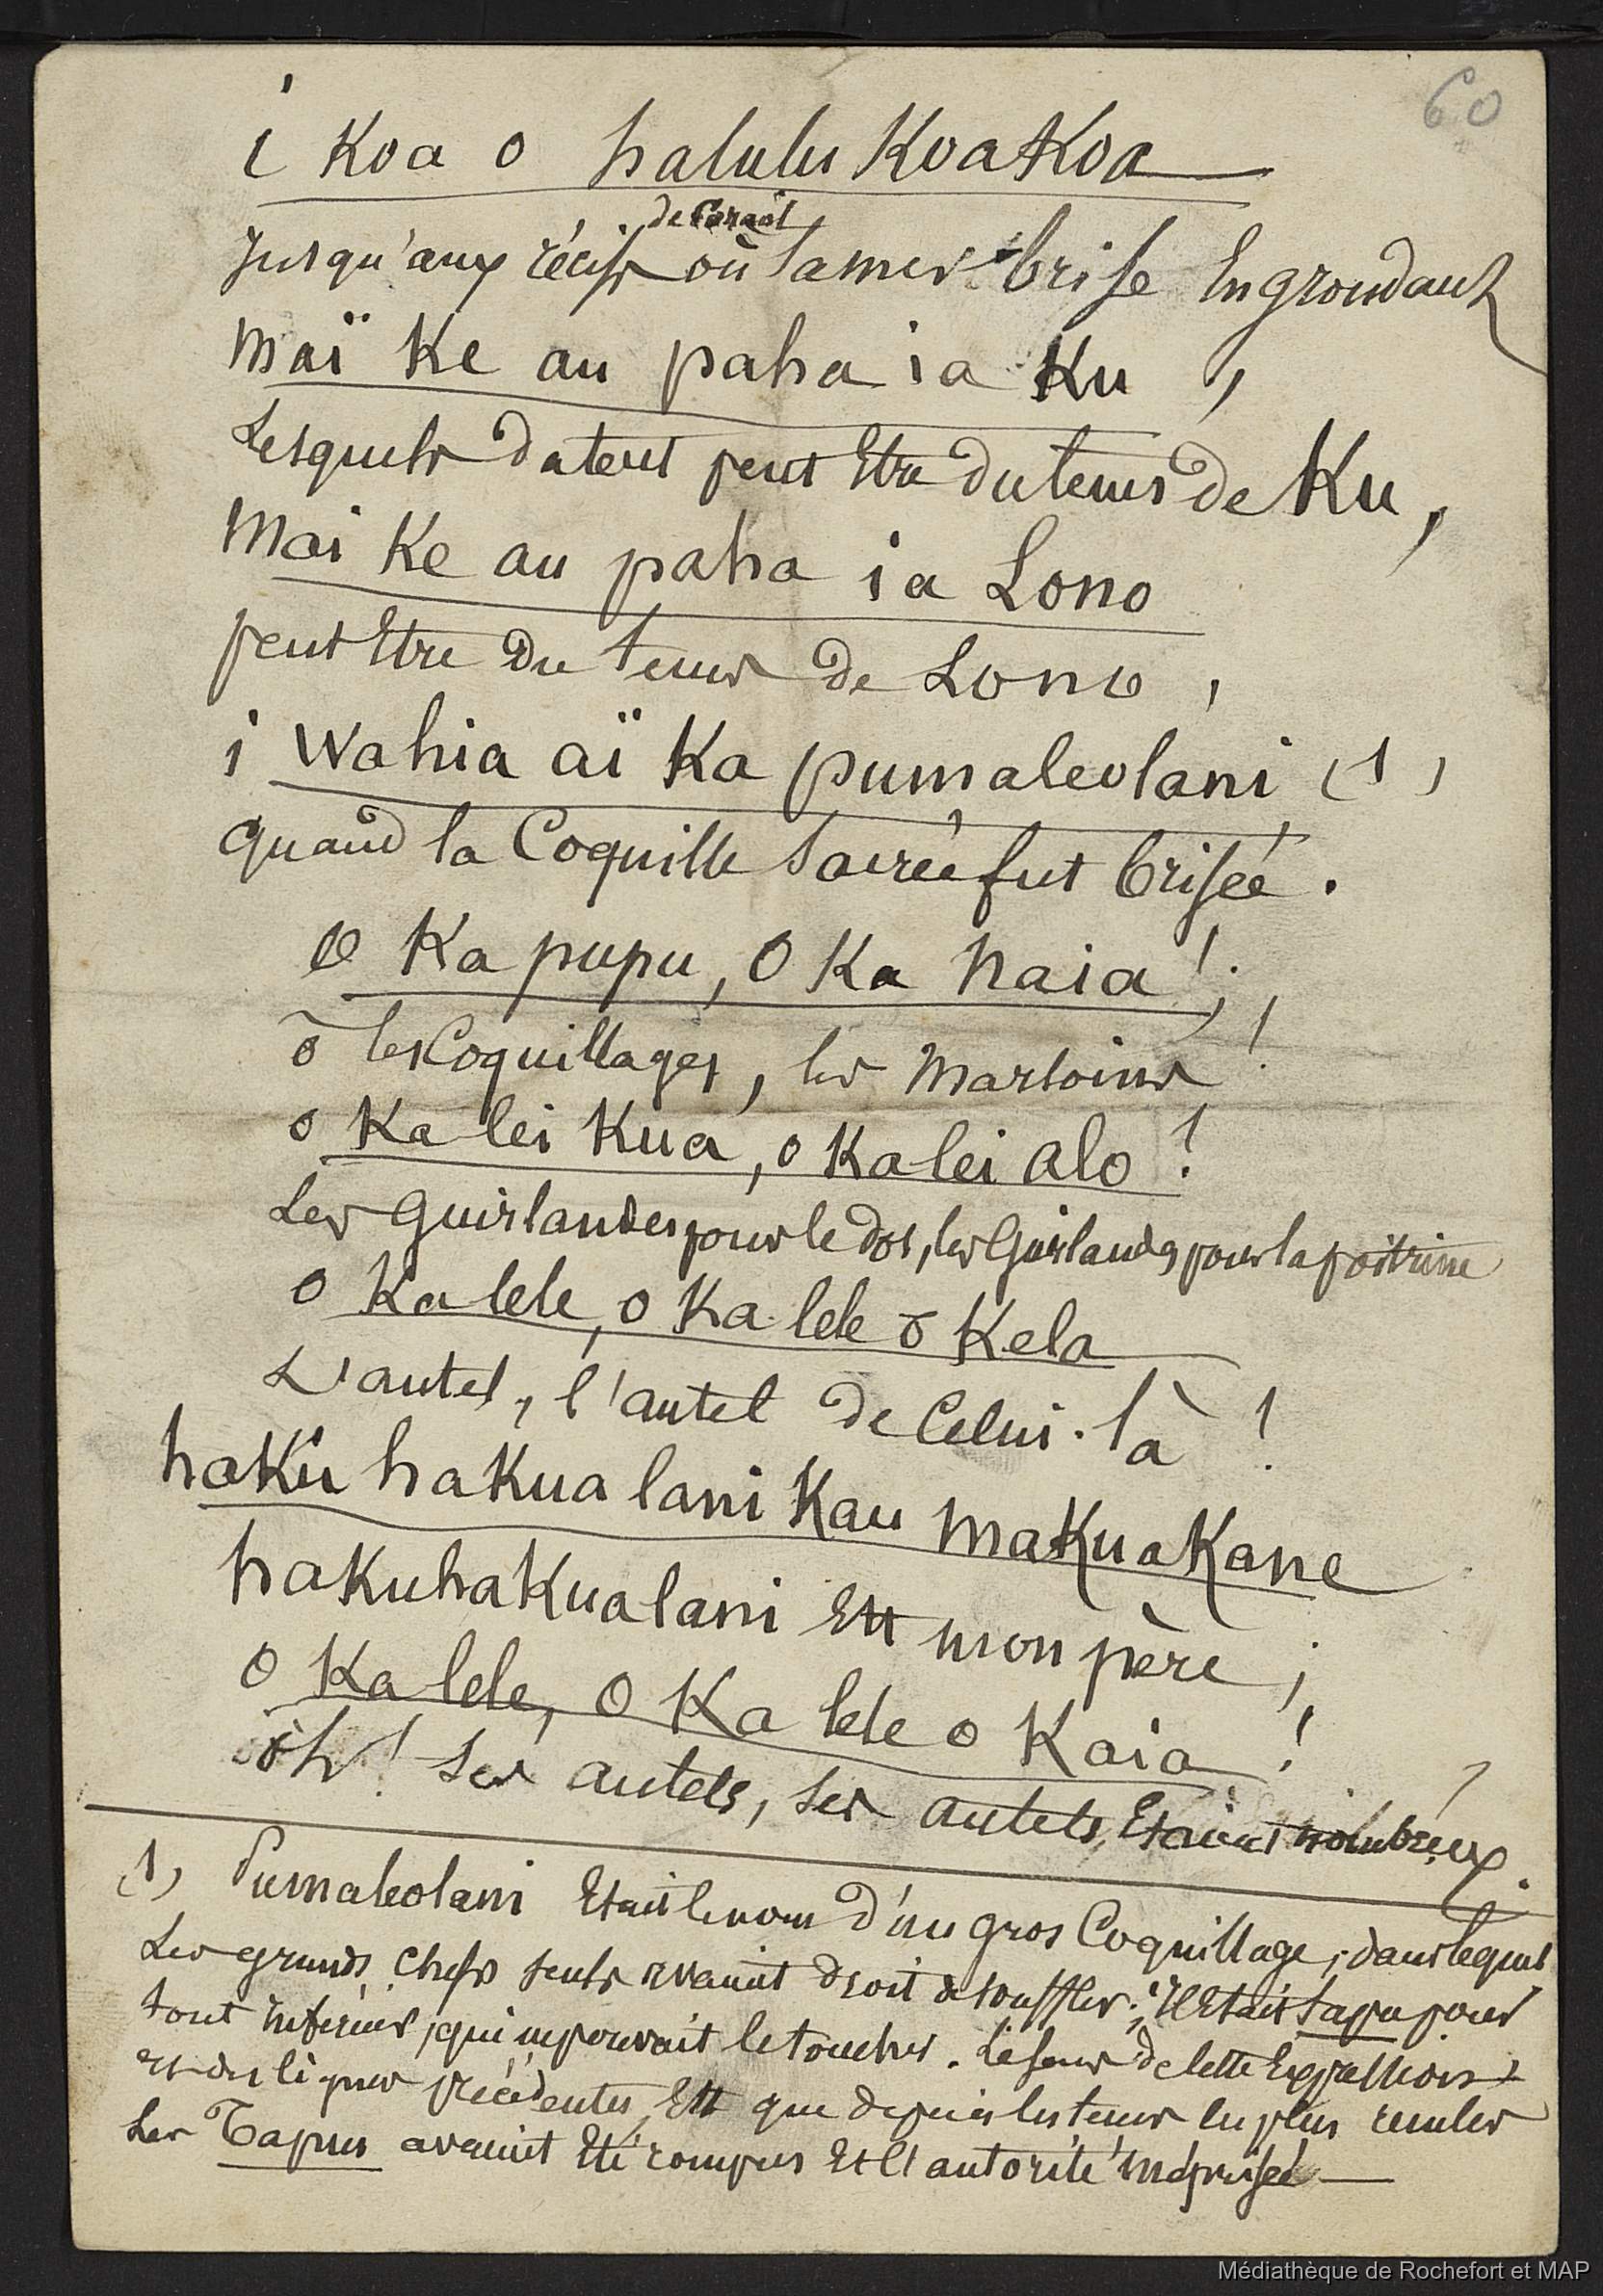 60
i Koa o halulu KoaKoa
de Corail
jusqu'aux récifs où la mer brise En grondant
maï Ke au paha ia Ku,
Lesquels datent peut Etre du tems de Ku,
Mai Ke au paha ia Lono
peut Etre Du tems de Lono,
i Wahia aï Ka pumaleolani (1)
quand la Coquille Sacrée fut brisée.
O Ka pupu, O Ka Naia !
ô les Coquillages, les Marsoins !
o Ka lei Kua, o Ka lei alo !
Les Guirlandes pour le dos, les Guirlandes pour la poitrine
o Ka lele, o Ka lele o Kela
L'autel, l'autel de Celui-là !
haku hakua lani Kau MaKuaKane
hakuhaKualani Est mon père ;
O Ka lele, O Ka lele o Kaia !
oh ! Ses autels, Ses autels, Etaient nombreux.
(1) Pumaleolani Etait le nom d'un gros Coquillage, dans lequel
Les grands Chefs seuls avaient droit de souffler ; il Etait tapu pour
tout inférieur, qui ne pouvait le toucher. Le sens de cette Expression
et des lignes précédentes, Est que depuis les tems les plus reculés
Les Tapus avaient Eté rompus Et l'autorité méprisée —
Médiathèque de Rochefort et MAP